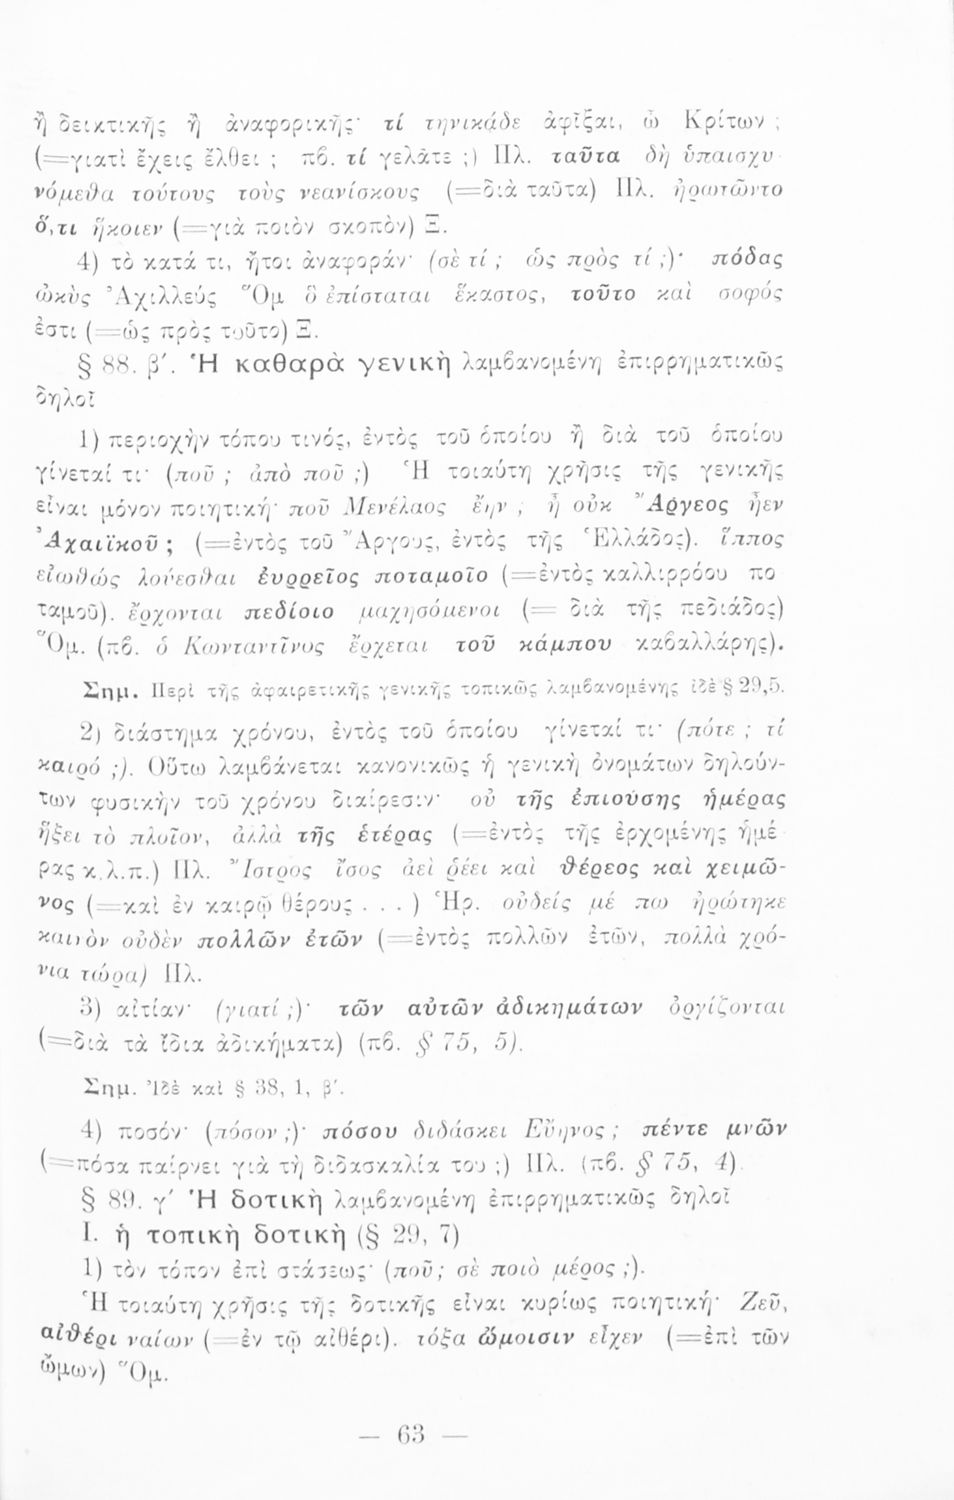 ἢ δεικτικῆς ἢ ἀναφορικῆς· τί τηνικάδε ἀφῖξαι, ὦ Κρίτων ;
(=γιατὶ ἔχεις ἔλθει ; πβ. τί γελᾶτε ;) Πλ. ταῦτα δὴ ὑπαισχυ
νόμεθα τούτους τοὺς νεανίσκους (=διὰ ταῦτα) Πλ. ἠρωτῶντο
ὅ,τι ἥκοιεν (=γιὰ ποιὸν σκοπὸν) Ξ.
4) τὸ κατά τι, ἤτοι ἀναφοράν· (σὲ τί ; ὡς πρὸς τί ;)· πόδας
ὠκὺς Ἀχιλλεύς Ὅμ ὃ ἐπίσταται ἕκαστος, τοῦτο καὶ σοφός
ἐστι (=ὡς πρὸς τοῦτο) Ξ.
§ 88. β′. Ἡ καθαρὰ γενικὴ λαμβανομένη ἐπιρρηματικῶς
δηλοῖ
1) περιοχὴν τόπου τινός, ἐντὸς τοῦ ὁποίου ἢ διὰ τοῦ ὁποίου
γίνεταί τι· (ποῦ ; ἀπὸ ποῦ ;) Ἡ τοιαύτη χρῆσις τῆς γενικῆς
εἶναι μόνον ποιητική· ποῦ Μενέλαος ἔην ; ἦ οὐκ Ἄργεος ἦεν
Ἀχαιϊκοῦ ; (=ἐντὸς τοῦ Ἄργους, ἐντὸς τῆς Ἑλλάδος). ἵππος
εἰωθὼς λούεσθαι ἐυρρεῖος ποταμοῖο (=ἐντὸς καλλιρρόου πο
ταμοῦ). ἔρχονται πεδίοιο μαχησόμενοι (= διὰ τῆς πεδιάδος)
Ὅμ. (πβ. ὁ Κωνταντῖνος ἔρχεται τοῦ κάμπου καβαλλάρης).
Σημ. Περὶ τῆς ἀφαιρετικῆς γενικῆς τοπικῶς λαμβανομένης ἰδὲ § 29,5.
2) διάστημα χρόνου, ἐντὸς τοῦ ὁποίου γίνεταί τι· (πότε ; τί
καιρό ;). Οὕτω λαμβάνεται κανονικῶς ἡ γενικὴ ὀνομάτων δηλούν-
των φυσικὴν τοῦ χρόνου διαίρεσιν· οὐ τῆς ἐπιούσης ἡμέρας
ἥξει τὸ πλοῖον, ἀλλὰ τῆς ἑτέρας (=ἐντὸς τῆς ἐρχομένης ἡμέ
ρας κ.λ.π.) Πλ. Ἴστρος ἴσος ἀεὶ ῥέει καὶ θέρεος καὶ χειμῶ-
νος (=καὶ ἐν καιρῷ θέρους . . . ) Ἡρ. οὐδείς μέ πω ἠρώτηκε
καινὸν οὐδὲν πολλῶν ἐτῶν (=ἐντὸς πολλῶν ἐτῶν, πολλὰ χρό-
νια τώρα) Πλ.
3) αἰτίαν· (γιατί ;)· τῶν αὐτῶν ἀδικημάτων ὀργίζονται
(=διὰ τὰ ἴδια ἀδικήματα) (πβ. § 75, 5).
Σημ. Ἰδὲ καὶ § 38, 1, β′.
4) ποσόν· (πόσον ;)· πόσου διδάσκει Εὔηνος ; πέντε μνῶν
(=πόσα παίρνει γιὰ τὴ διδασκαλία του ;) Πλ. (πβ. § 75, 4)
§ 89. γ′ Ἡ δοτικὴ λαμβανομένη ἐπιρρηματικῶς δηλοῖ
Ι. ἡ τοπικὴ δοτικὴ (§ 29, 7)
1) τὸν τόπον ἐπὶ στάσεως· (ποῦ; σὲ ποιὸ μέρος ;).
Ἡ τοιαύτη χρῆσις τῆς δοτικῆς εἶναι κυρίως ποιητική· Ζεῦ,
αἰθέρι ναίων (=ἐν τῷ αἰθέρι). τόξα ὤμοισιν εἶχεν (=ἐπὶ τῶν
ὤμων) Ὅμ.
— 63 —